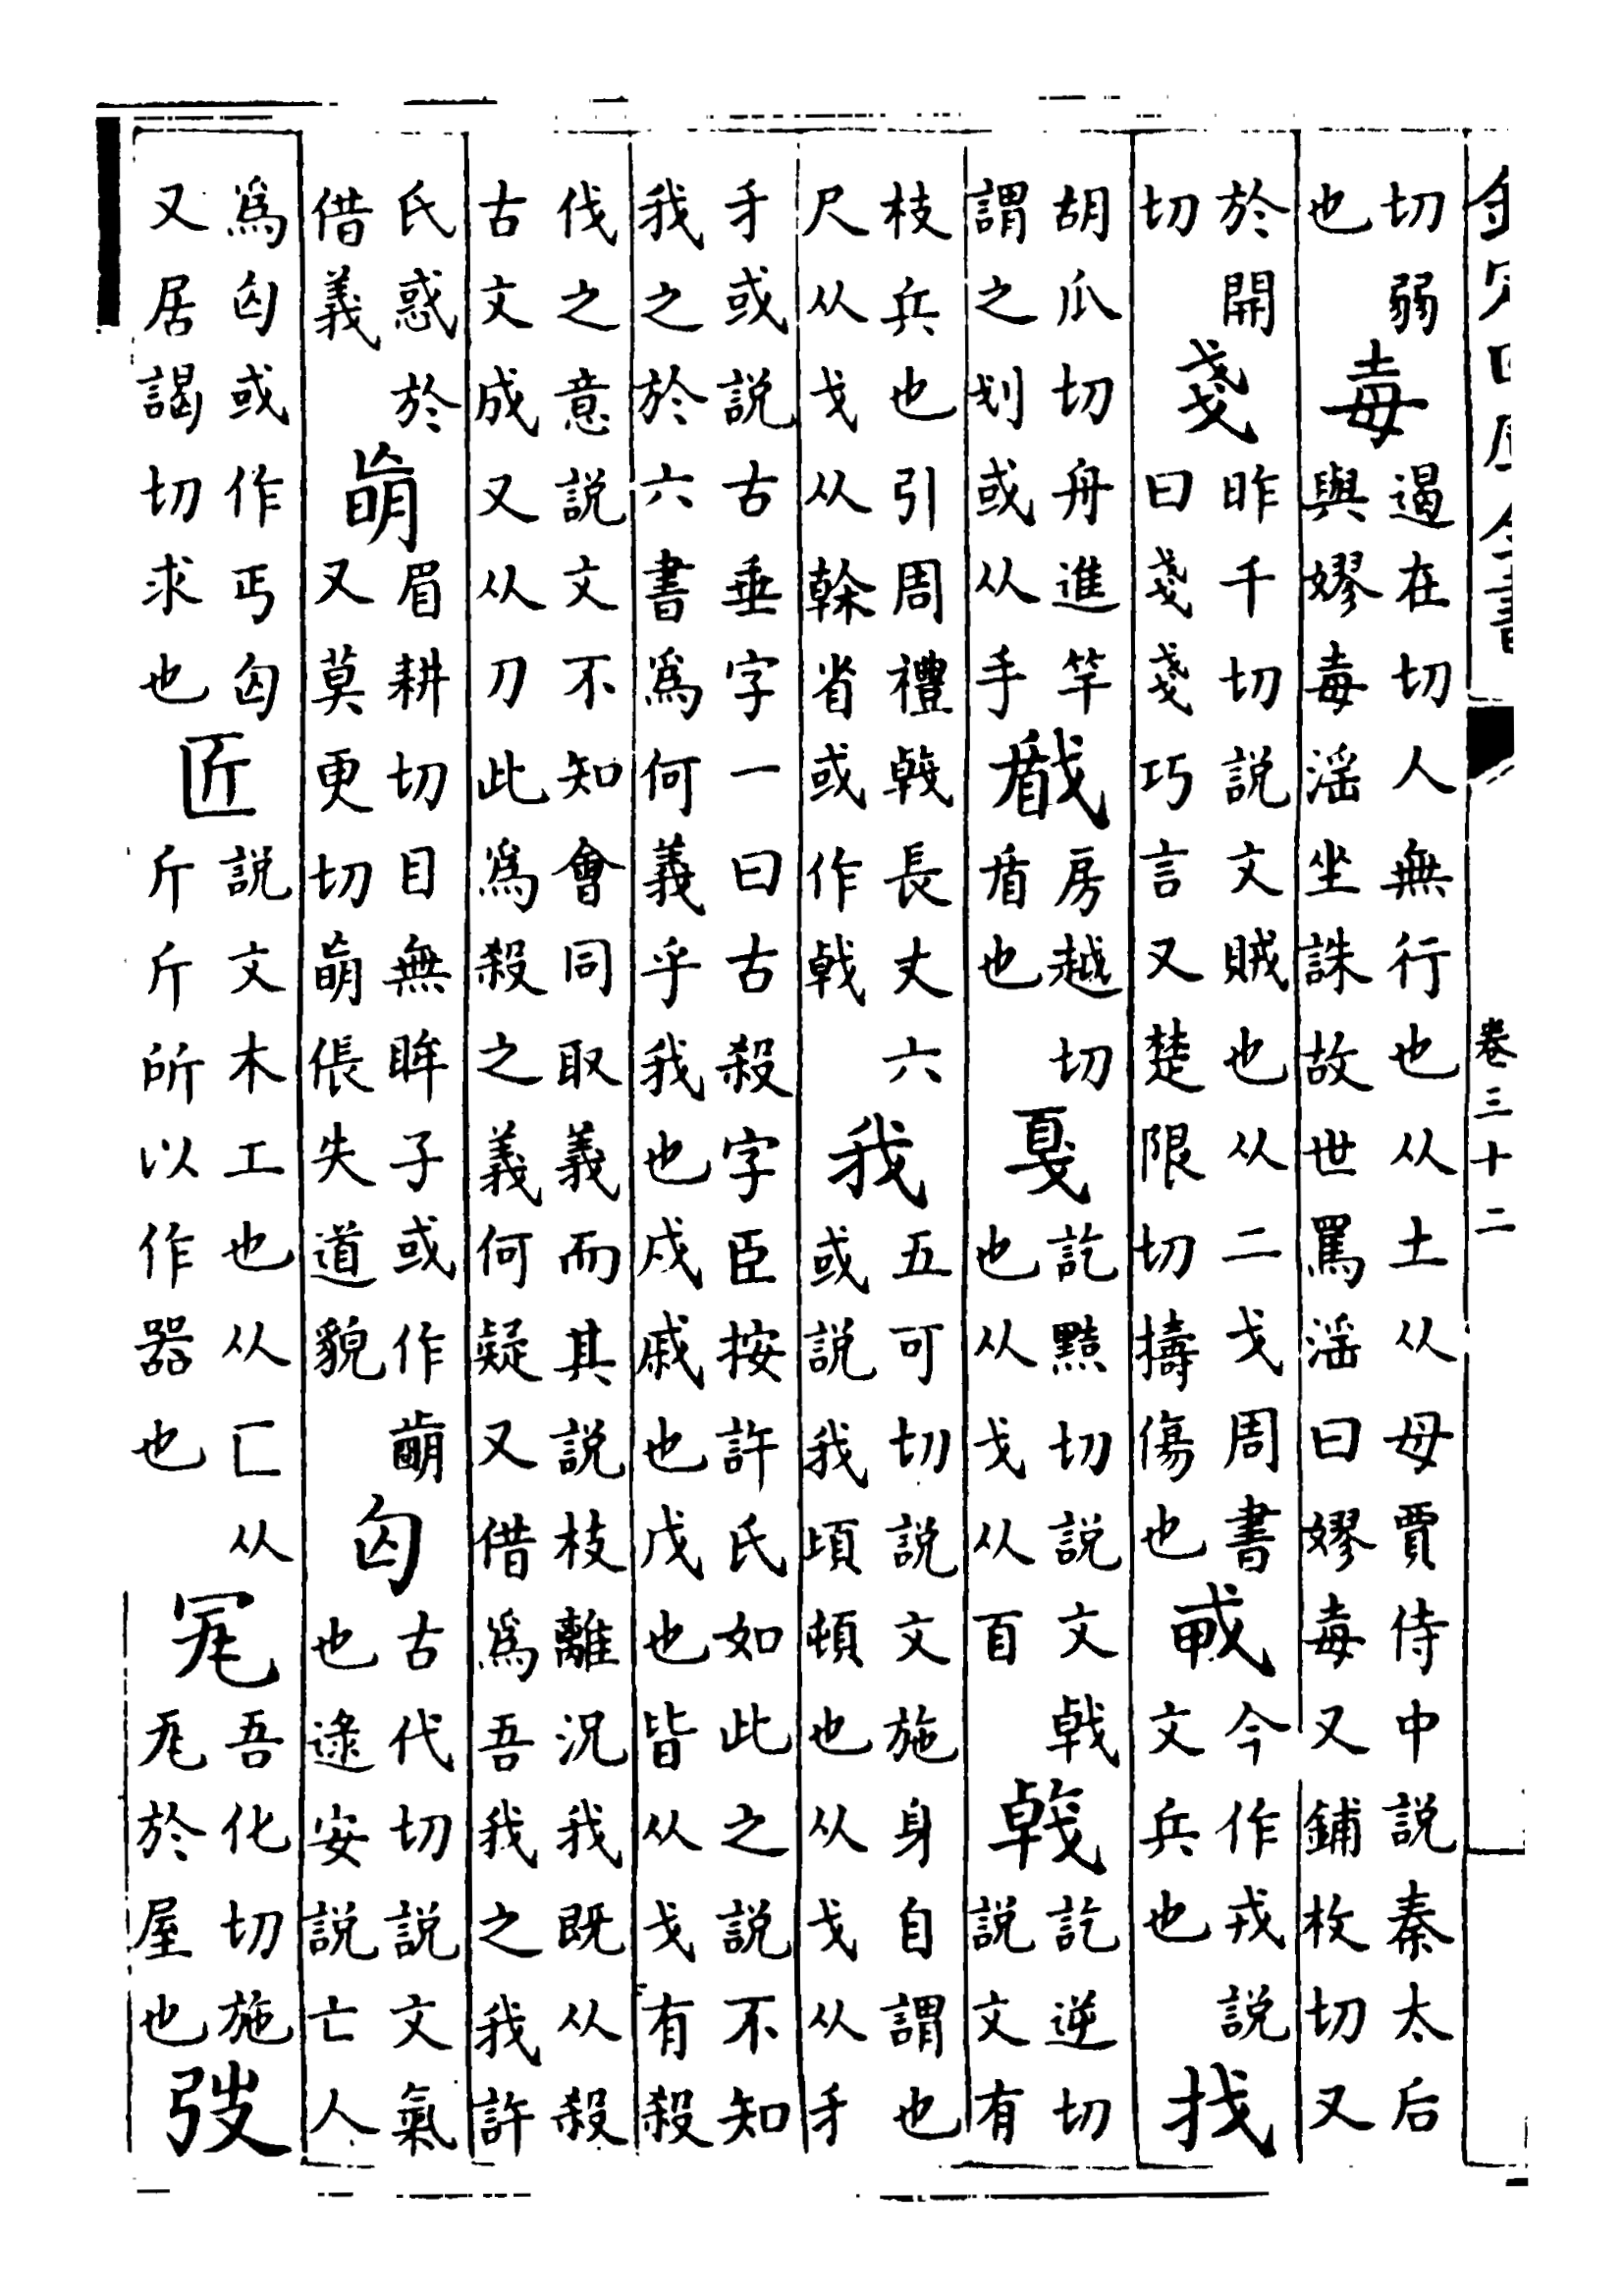 欽定四庫全書
卷三十二
切弱
也
毐
遏在切人無行也从土从毋賈侍中説秦太后
與嫪毐淫坐誅故世罵淫曰嫪毐又鋪枚切又
於開
切
戔
昨千切説文賊也从二戈周書
曰戔戔巧言又楚限切擣傷也
𢦦
今作戎説
文兵也
找
胡瓜切舟進竿
謂之划或从手
瞂
房越切
盾也
戛
訖黠切説文戟
也从戈从百
𢧢
訖逆切
説文有
枝兵也引周禮𢧢長丈六
尺从戈从榦省或作戟
我
五可切説文施身自謂也
或説我頃頓也从戈从𠂌
𠂌或説古垂字一曰古殺字臣按許氏如此之説不知
我之於六書為何義乎我也戍戚也戊也皆从戈有殺
伐之意説文不知會同取義而其説枝離況我既从殺
古文成又从刀此為殺之義何疑又借為吾我之我許
氏惑於
借義
眉耕切目無眸子或作
又莫更切倀失道貌
匃
古代切説文氣
也逯安説亡人
為匃或作丐匃
又居謁切求也
匠
説文木工也从匚从
斤斤所以作器也
吾化切施
瓦於屋也
弢